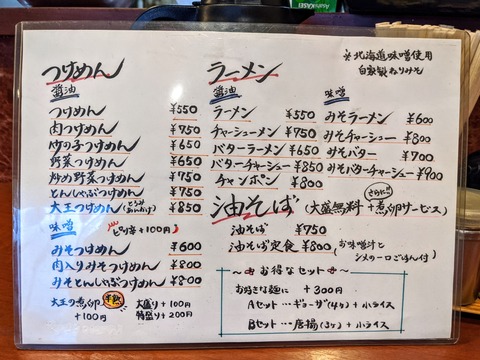 つけめん
醤油
つけめん ¥550
肉つけめん ¥750
竹の子つけめん ¥650
野菜つけめん ¥650
炒め野菜つけめん ¥750
とんしゃぶつけめん ¥750
大王つけめん(とろみあんかけ) ¥850
味噌 ピリ辛+100円
みそつけめん ¥600
肉入りみそつけめん ¥800
みそとんしゃぶつけめん ¥800
大王の煮卵 半熟 +100円
大盛り+100円
特盛り+200円
ラーメン
醤油
ラーメン ¥550
チャーシューメン ¥750
バターラーメン ¥650
バターチャーシュー ¥850
チャンポン ¥800
※北海道味噌使用
自家製ねりみそ
味噌
みそラーメン ¥600
みそチャーシュー ¥800
みそバター ¥700
みそバターチャーシュー ¥900
油そば (大盛無料 さらに!! +煮卵サービス)
油そば ¥750
油そば定食 ¥800 (お味噌汁とシメの一口ごはん付)
〜お得なセット〜
お好きな麺に +300円
Aセット…ギョーザ(4ケ)+小ライス
Bセット…唐揚(3ケ)+小ライス